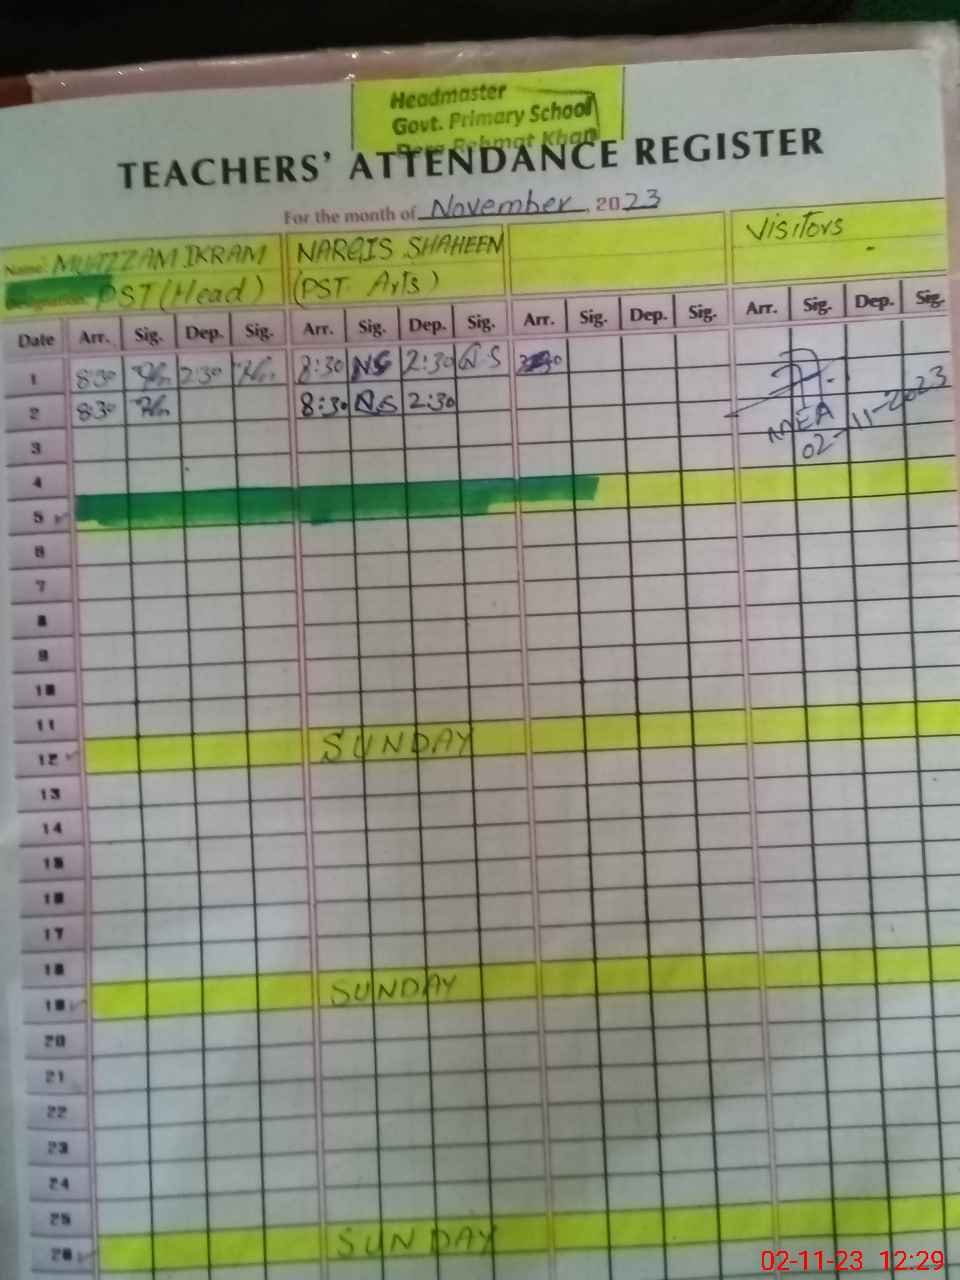 Headmaster
Govt. Primary School
Dera Rehmat Khan
TEACHERS' ATTENDANCE REGISTER
For the month of November, 2023
Name: MUAZZAM IKRAM NARGIS SHAHEEN Visitors
Designation: PST (Head) (PST Arts)
Date Arr. Sig. Dep. Sig. Arr. Sig. Dep. Sig. Arr. Sig. Dep. Sig. Arr. Sig. Dep. Sig.
1 8:30 2:30 8:30 NS 2:30 N.S
2 8:30 8:30 N.S 2:30
MEA
02-11-2023
3
4
5
6
7
8
9
10
11
12 SUNDAY
13
14
15
16
17
18
19 SUNDAY
20
21
22
23
24
25
26 SUNDAY
02-11-23 12:29